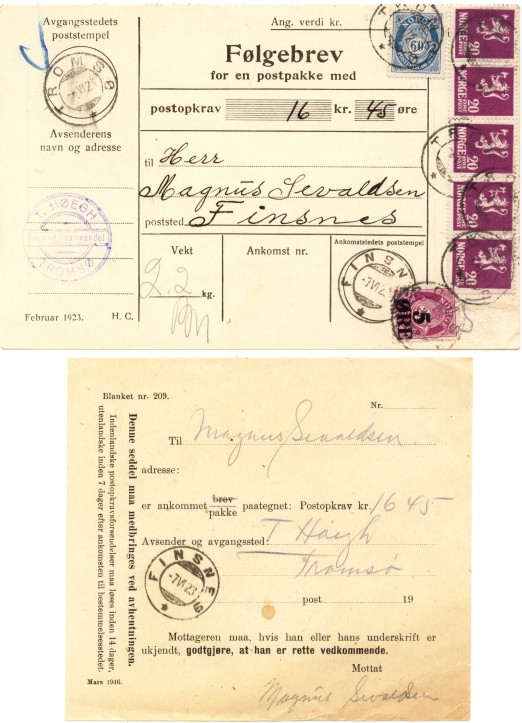 Avgangsstedets
poststempel
TROMSØ
Avsenderens
navn og adresse
T. HØEGH
TROMSØ
Februar 1923. H. C.
Ang. verdi kr.
Følgebrev
for en postpakke med
postopkrav 16 kr. 45 øre
til Herr
Magnus Sevaldsen
poststed Finsnes
Vekt
2,2 kg.
Ankomst nr.
Ankomststedets poststempel
FINSNES
-7 VI 23
NORGE
60
NORGE
POST
20
NORGE
POST
20
NORGE
POST
20
NORGE
POST
20
NORGE
POST
20
5
ØRE
Blanket nr. 209.
Nr.
Til Magnus Sevaldsen
adresse:
er ankommet brev
pakke paategnet: Postopkrav kr. 16 45
Avsender og avgangssted: T Høegh
Tromsø
FINSNES
-7 VI 23
post 19
Mottageren maa, hvis han eller hans underskrift er
ukjendt, godtgjøre, at han er rette vedkommende.
Mottat
Magnus Sevaldsen
Denne seddel maa medbringes ved avhentningen.
Indenlandske postopkravsforsendelser maa løses inden 14 dager,
utenlandske inden 7 dager efter ankomsten til bestemmelsesstedet.
Mars 1916.